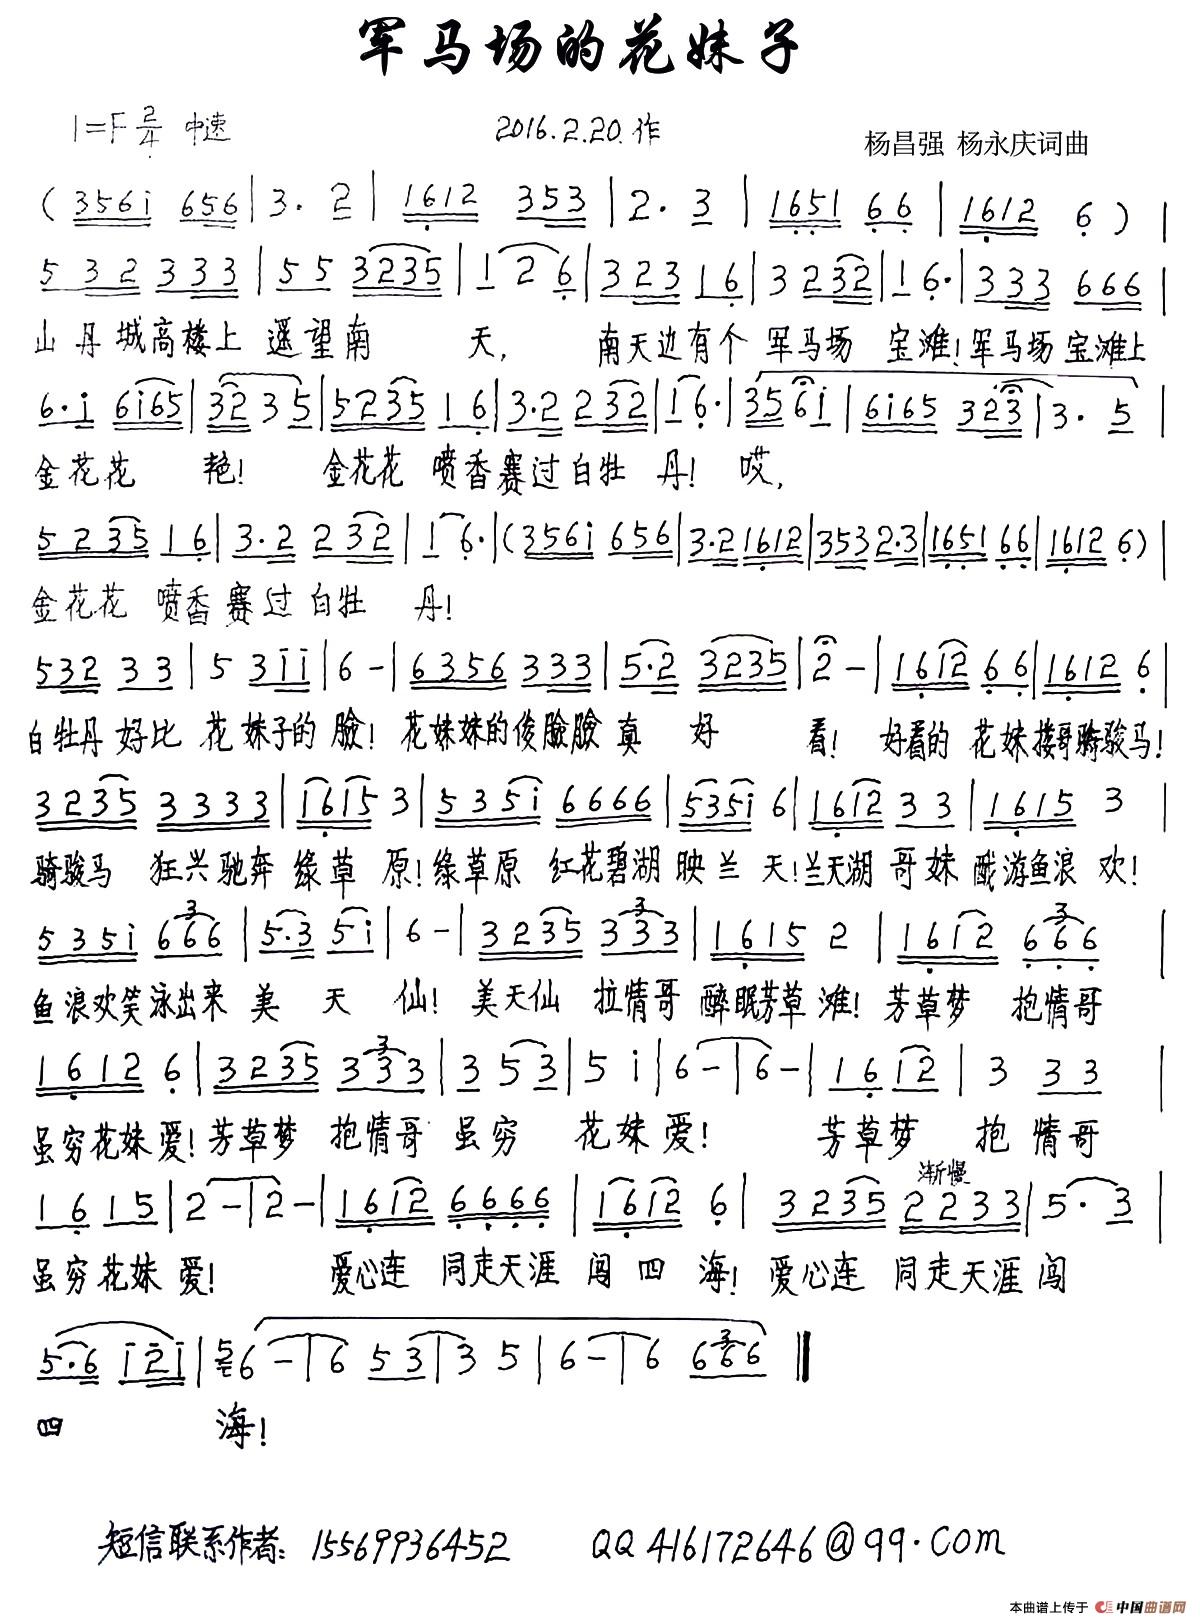 军马场的花妹子
1=F 2/4 中速 2016.2.20.作 杨昌强 杨永庆词曲
( 3561 656 | 3. 2 | 1612 353 | 2. 3 | 1651 66 | 1612 6 ) |
5 32 333 | 55 3235 | 1 2 6 | 323 16 | 3 232 | 16. | 333 666 |
山丹城高楼上 遥望南 天, 南天边有个 军马场 宝滩! 军马场 宝滩上
6.i 6i65 | 3235 | 5235 16 | 3.2 232 | 16. | 356i | 6i65 323 | 3. 5 |
金花花 艳! 金花花 喷香赛过白牡 丹! 哎,
5235 16 | 3.2 232 | 16. | (356i 656 | 3.2 1612 | 353 2.3 | 1651 66 | 1612 6) |
金花花 喷香赛过白牡 丹!
532 33 | 5 3ii | 6 - | 6356 333 | 5.2 3235 | 2 - | 1612 66 | 1612 6 |
白牡丹 好比 花妹子的 臉! 花妹妹的俊臉臉真 好 看! 好看的 花妹搂哥骑骏马!
3235 3333 | 1615 3 | 535i 6666 | 535i 6 | 1612 33 | 1615 3 |
骑骏马 狂兴驰奔 绿草 原! 绿草原 红花碧湖映兰天! 兰天湖 哥妹 酣游鱼浪欢!
535i 666 | 5.3 5i | 6 - | 3235 333 | 1615 2 | 1612 666 |
鱼浪欢笑泳出来 美 天 仙! 美天仙 拉情哥 醉眠芳草滩! 芳草梦 抱情哥
1612 6 | 3235 333 | 3 5 3 | 5 i | 6 - | 6 - | 16 12 | 3 33 |
虽穷花妹爱! 芳草梦 抱情哥 虽穷 花妹爱! 芳草梦 抱情哥
渐慢
16 15 | 2 - | 2 - | 1612 6666 | 1612 6 | 3235 2233 | 5. 3 |
虽穷花妹爱! 爱心连 同走天涯 闯四海! 爱心连 同走天涯闯
5.6 i2i | 5 6 - | 6 53 | 3 5 | 6 - | 6 666 ‖
四 海!
短信联系作者: 15569936452 QQ 416172646@qq.com
本曲谱上传于 中国曲谱网